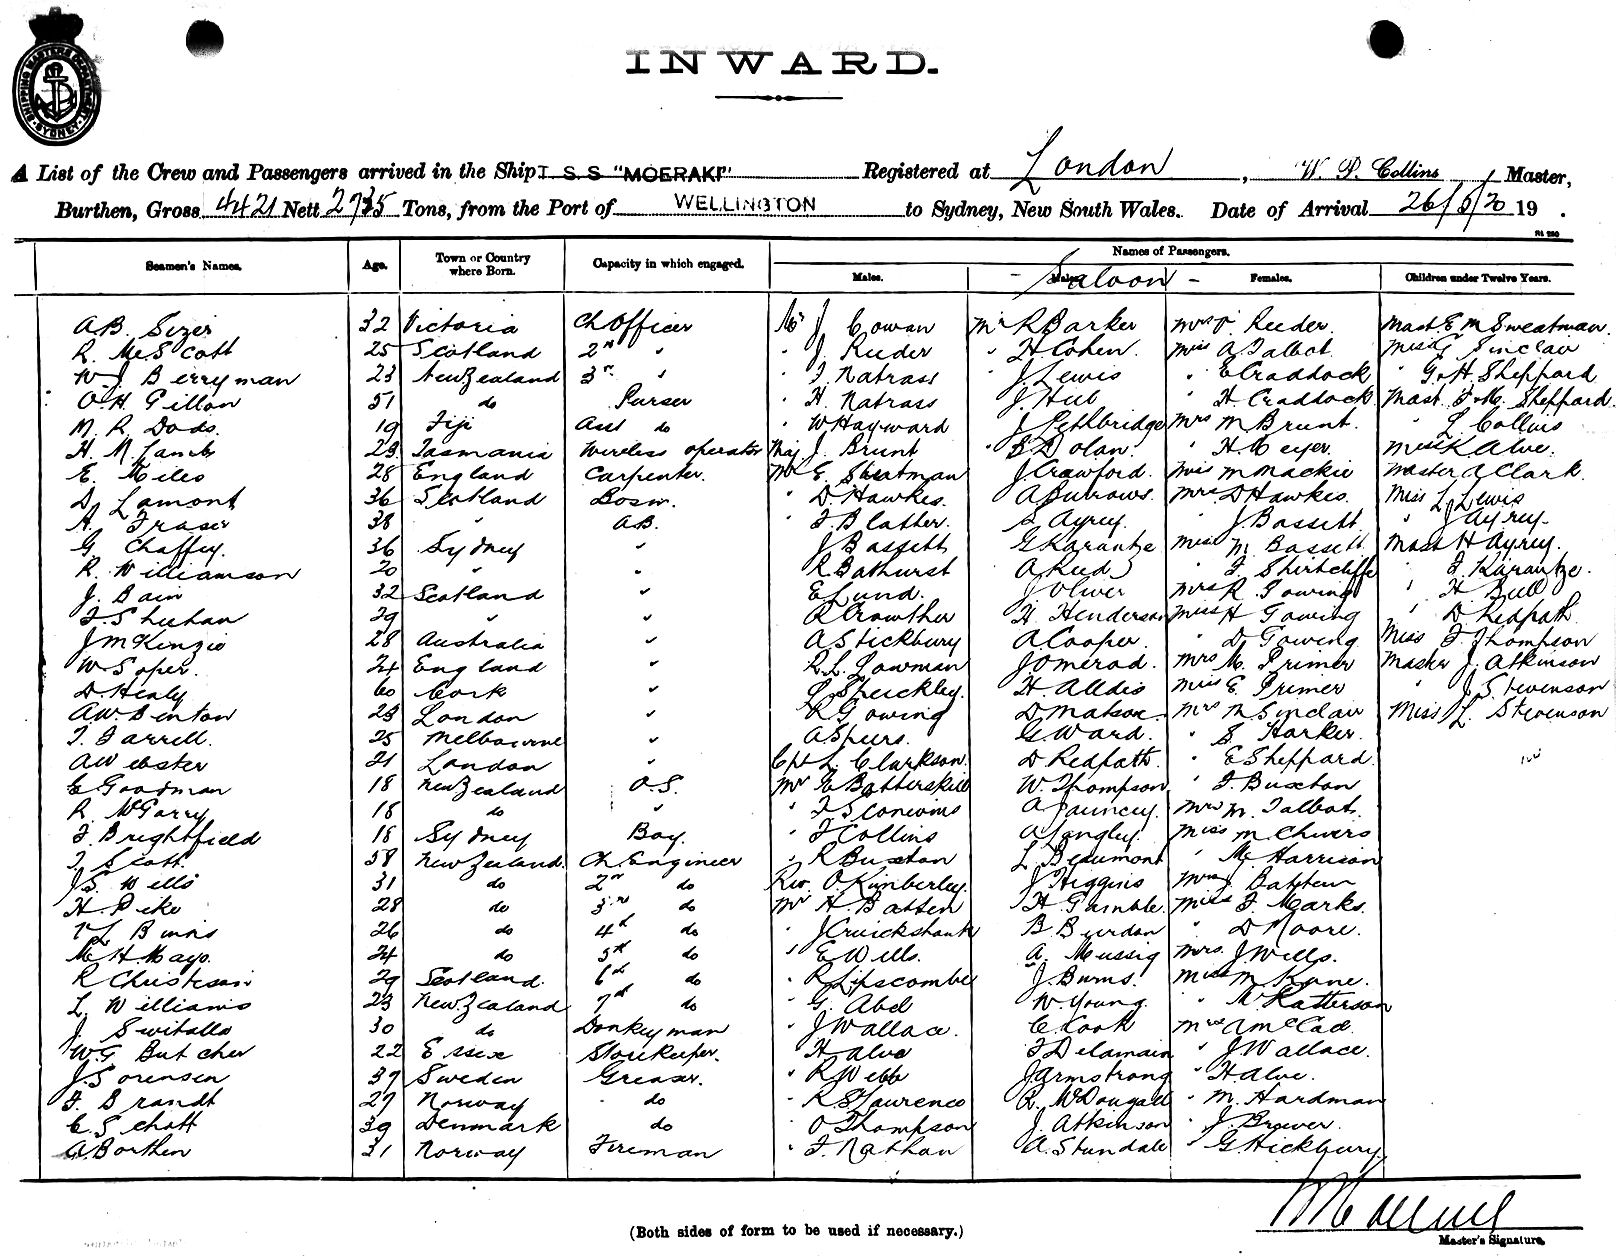 SHIPPING MASTERS DEPARTMENT SYDNEY
INWARD.
A List of the Crew and Passengers arrived in the Ship T. S. S "MOERAKI" Registered at London, W. P. Collins, Master,
Burthen, Gross 4421 Nett 2735 Tons, from the Port of WELLINGTON to Sydney, New South Wales. Date of Arrival 26/5/20 19 .
Names of Passengers.
Seamen's Names. Age. Town or Country where Born. Capacity in which engaged. Males. Males. Females. Children under Twelve Years.
- Saloon -
A.B. Sizer 32 Victoria Ch Officer Mr J Cowan Mr R Barker Mrs Reeder. Mast E M Sweatman
R. McScott 25 Scotland 2nd " " J. Reeder " H Cohen. Miss A Talbot. Miss Sinclair
W J Berryman 23 New Zealand 3rd " " Natrass J Lewis " E Craddock " G. H. Sheppard
O. H. Gillon 51 do Purser " H. Natrass J. " H. Craddock Mast. Sheppard.
M. R. Dods. 19 Fiji Asst do " W Hayward J Pethbridge Mrs M Brunt. " Collins
H. M. Lamb 23 Tasmania Wireless operator Maj. J. Brunt " Dolan. " H Meyer. Miss K Alve.
E. Miles 28 England Carpenter. Mr E. Sweatman J. Crawford. Miss M Mackie Master A Clark.
D. Lamont 36 Scotland Bosn. " D. Hawkes. A Burrows. Mrs D Hawkes. Miss L Lewis
A. Fraser 38 " A.B. " F. Blather. Ayrey. " J Bassett. " J Ayrey.
G Chaffey. 36 Sydney " J Bassett G Karantze Miss M. Bassett. Mast H Ayrey.
R. Williamson 20 " " R. Bathurst A Reid " F Shirtcliffe " Karantze.
J. Bain 32 Scotland " E Lund. J Oliver Mrs R. Gowing " H Bull
F. Sheehan 29 " " R Crowther H Henderson Miss H Gowing " D Redpath
J McKenzie 28 Australia " A Stickbury A Cooper. " D Gowing Miss F Thompson
W Soper. 24 England " R. L. Lowman J Omerod. Mrs M. Primer Master J. Atkinson
D Healy 60 Cork " Speickley. H Alldis Miss E. Primer " J. Stevenson
A W. Benton 23 London " R Gowing D Matson Mrs M Sinclair Miss L. Stevenson
T. Farrell. 25 Melbourne " A Spurs. G. Ward. " S Harker.
A Webster 21 London " Cpt L. Clarkson. D Redpath. " E Sheppard.
C Goodman 18 New Zealand O.S. Mr G Batterskill W. Thompson " F Buxton
R McGarry 18 do " " A Jauncey. Mrs M. Talbot.
F Brightfield 18 Sydney Boy. " F Collins A Langley. Miss M Chivers
T Scott 58 New Zealand. Ch Engineer " R Buxton L Beaumont " M Harrison
J. S. Wells 31 do 2nd do Rev. O. Kimberley. J Higgins Mrs J Batten
H. Pike 28 do 3rd do Mr H. Batten H Gamble. Miss F. Marks.
L Binns 26 do 4th do " J Cruickshank B. Burdon " D Moore.
M. H. Mayo. 24 do 5th do " E Wills. A. Mussig Mrs. J Wells.
R Christison 29 Scotland. 6th do " R Lipscombe J. Burns. Miss M Kane.
L. Williams 23 New Zealand 7th do " G. Abel W. Young. " M Katterson
J. Switalla 30 do Donkeyman " J Wallace. C. Cook Mrs A McCad.
W. G Butcher 22 Essex Storekeeper. " H Alve F Delamain " J Wallace.
J Sorensen 37 Sweden Greaser. " R Webb J Armstrong " H Alve.
F. Brandt 27 Norway do " R St Laurence R. McDougall " M. Hardman
C. Schatt 39 Denmark do " O Thompson J. Atkinson " J. Brewer.
A Borthen 31 Norway Fireman " F. Nathan A. Stundale " G Hickbury
(Both sides of form to be used if necessary.)
Master's Signature.